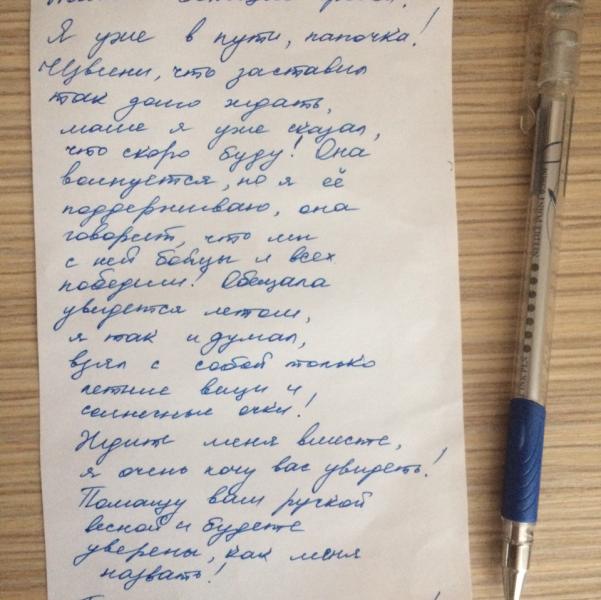 Я уже в пути, папочка!
Извени, что заставил
так долго ждать,
маме я уже сказал,
что скоро буду! Она
волнуется, но я её
поддерживаю, она
говорит, что мы
с ней бойцы и всех
победим! Обещала
увидется летом,
я так и думал,
взял с собой только
летние вещи и
солнечные очки!
Ждите меня вместе,
я очень хочу вас увидеть!
Помашу вам ручкой
весной и будете
уверены, как меня
назвать!